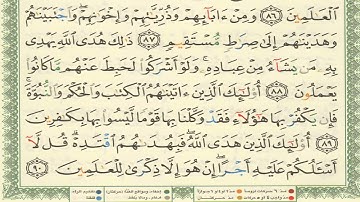 ٱلْعَٰلَمِينَ ٨٦ وَمِنْ ءَابَآئِهِمْ وَذُرِّيَّٰتِهِمْ وَإِخْوَٰنِهِمْ وَٱجْتَبَيْنَٰهُمْ
وَهَدَيْنَٰهُمْ إِلَىٰ صِرَٰطٍ مُّسْتَقِيمٍ ٨٧ ذَٰلِكَ هُدَى ٱللَّهِ يَهْدِى
بِهِۦ مَن يَشَآءُ مِنْ عِبَادِهِۦ وَلَوْ أَشْرَكُوا۟ لَحَبِطَ عَنْهُم مَّا كَانُوا۟
يَعْمَلُونَ ٨٨ أُو۟لَٰٓئِكَ ٱلَّذِينَ ءَاتَيْنَٰهُمُ ٱلْكِتَٰبَ وَٱلْحُكْمَ وَٱلنُّبُوَّةَ
فَإِن يَكْفُرْ بِهَا هَٰٓؤُلَآءِ فَقَدْ وَكَّلْنَا بِهَا قَوْمًا لَّيْسُوا۟ بِهَا بِكَٰفِرِينَ
٨٩ أُو۟لَٰٓئِكَ ٱلَّذِينَ هَدَى ٱللَّهُ فَبِهُدَىٰهُمُ ٱقْتَدِهْ قُل لَّآ
أَسْـَٔلُكُمْ عَلَيْهِ أَجْرًا إِنْ هُوَ إِلَّا ذِكْرَىٰ لِلْعَٰلَمِينَ ٩٠